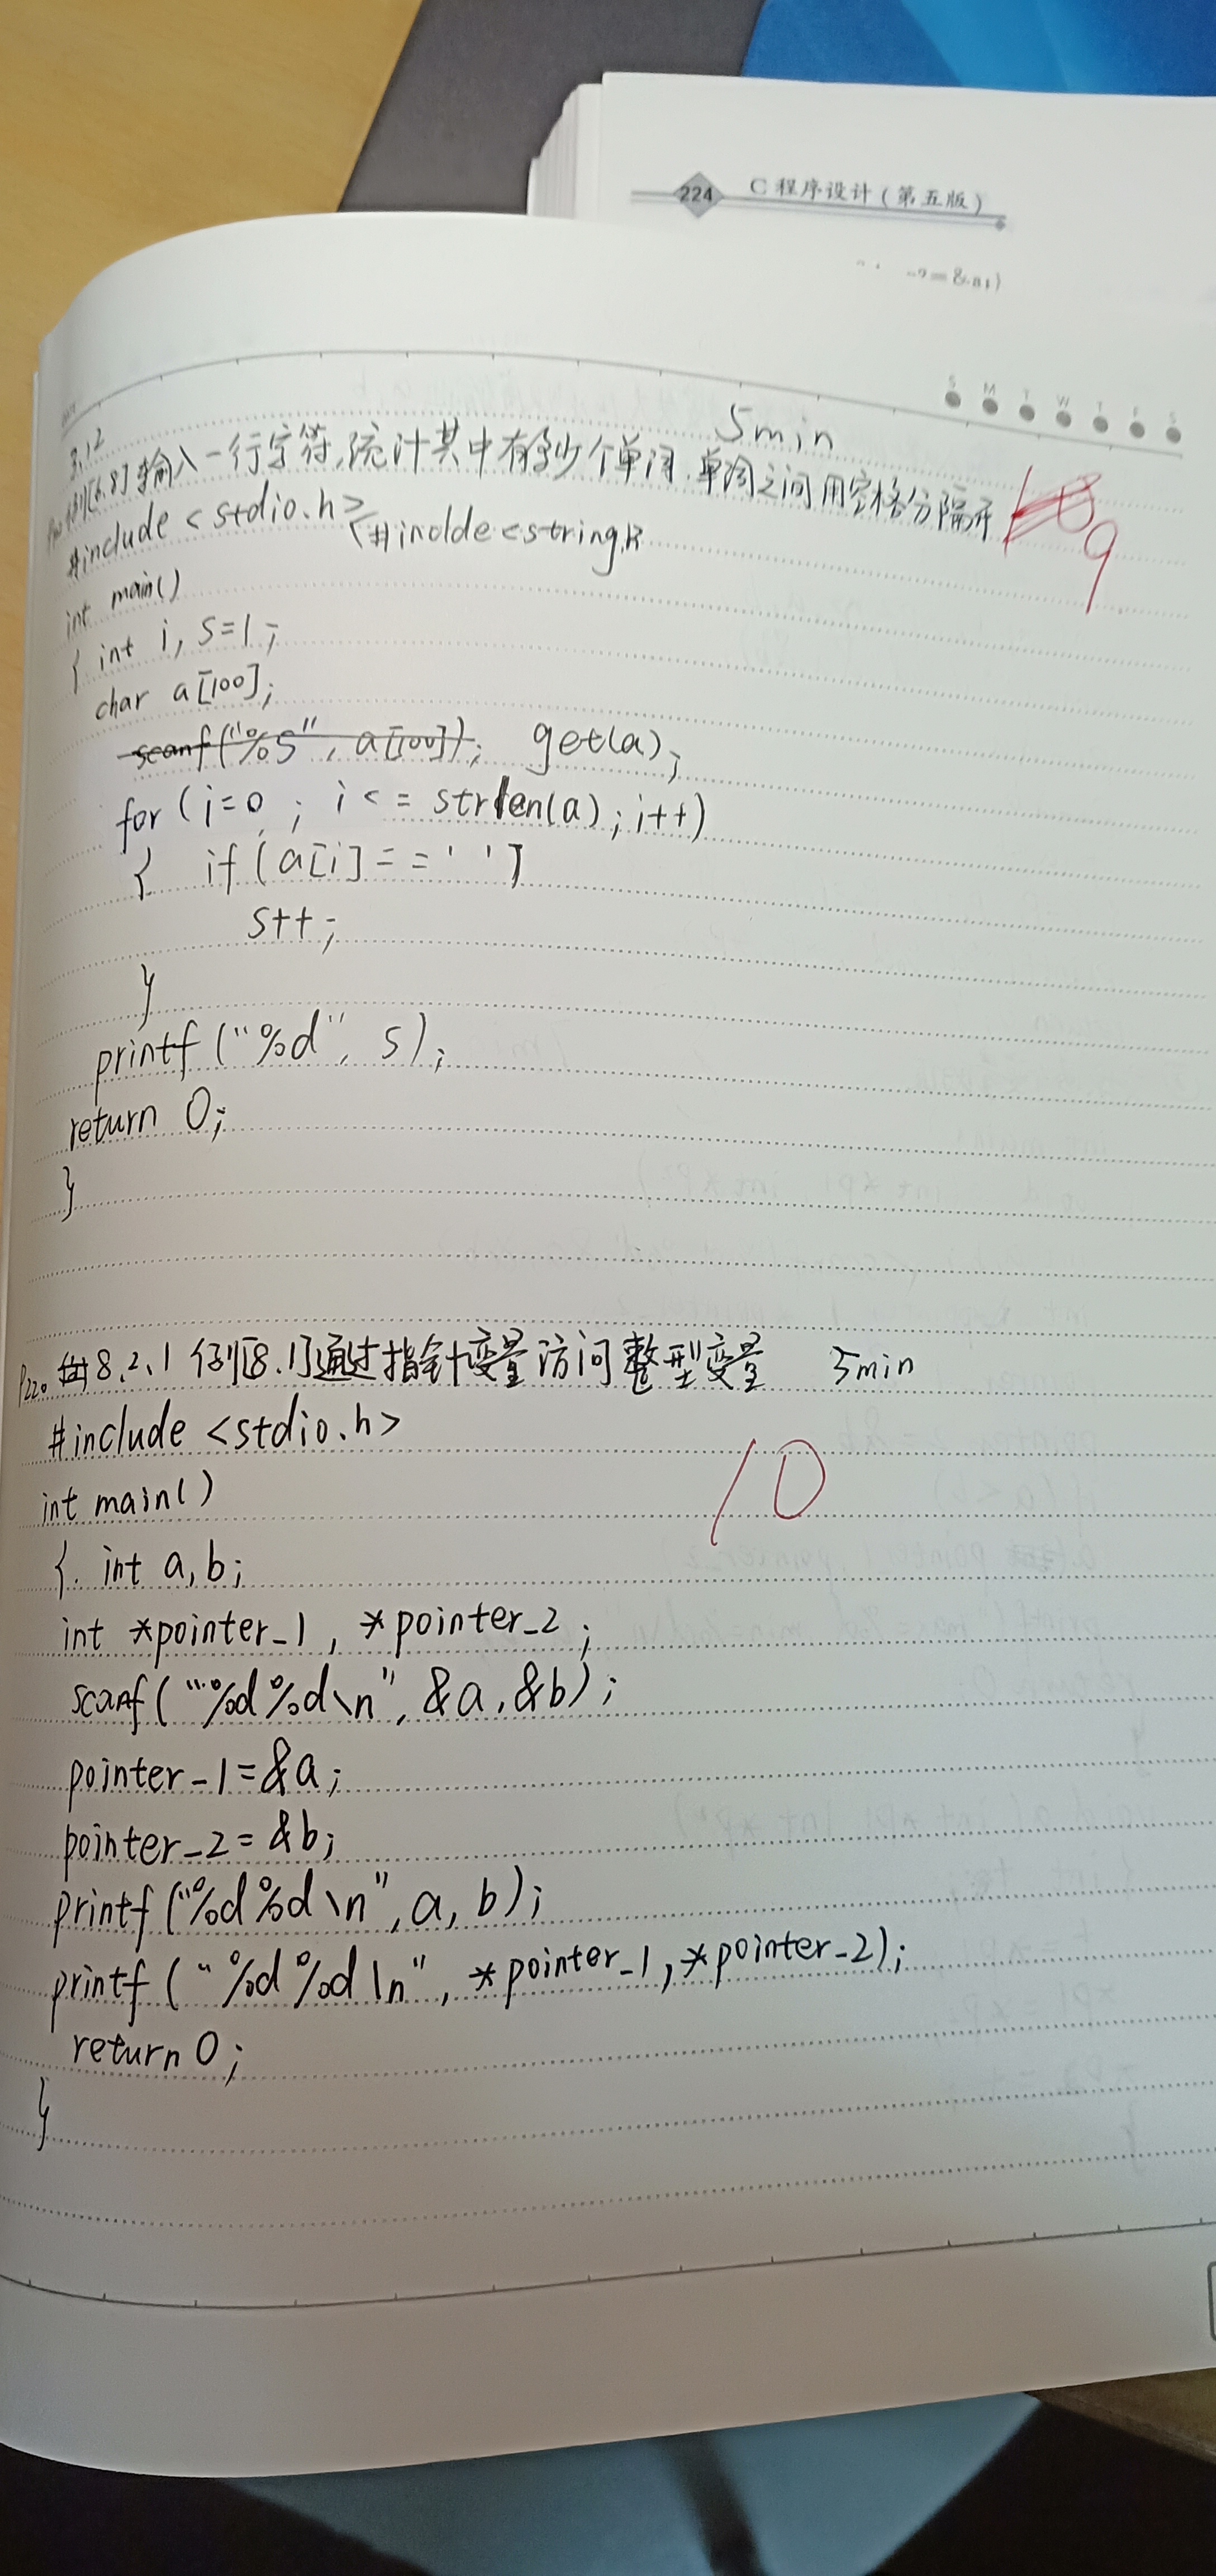 224 C程序设计(第五版)
S M T W T F S
3.12
5min
例[6.8]输入一行字符,统计其中有多少个单词,单词之间用空格分隔开
9
#include <stdio.h> #inclde <string.h
int main()
{ int i, s=1;
char a[100];
scanf("%s", a[100]); get(a);
for (i=0; i<=strlen(a); i++)
{ if (a[i]==' ')
s++;
}
printf("%d", s);
return 0;
}
P220 8.2.1 例[8.1]通过指针变量访问整型变量 5min
#include <stdio.h>
10
int main()
{ int a,b;
int *pointer_1, *pointer_2;
scanf("%d%d\n", &a, &b);
pointer_1=&a;
pointer_2=&b;
printf("%d%d\n", a, b);
printf("%d%d\n", *pointer_1, *pointer_2);
return 0;
}